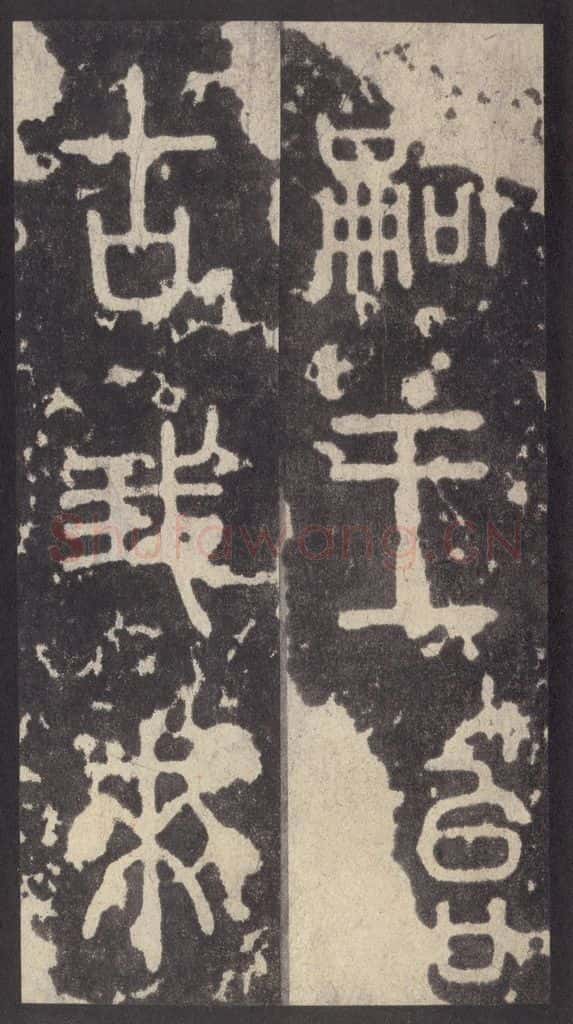 嗣王始
古我來
Shufawang.CN